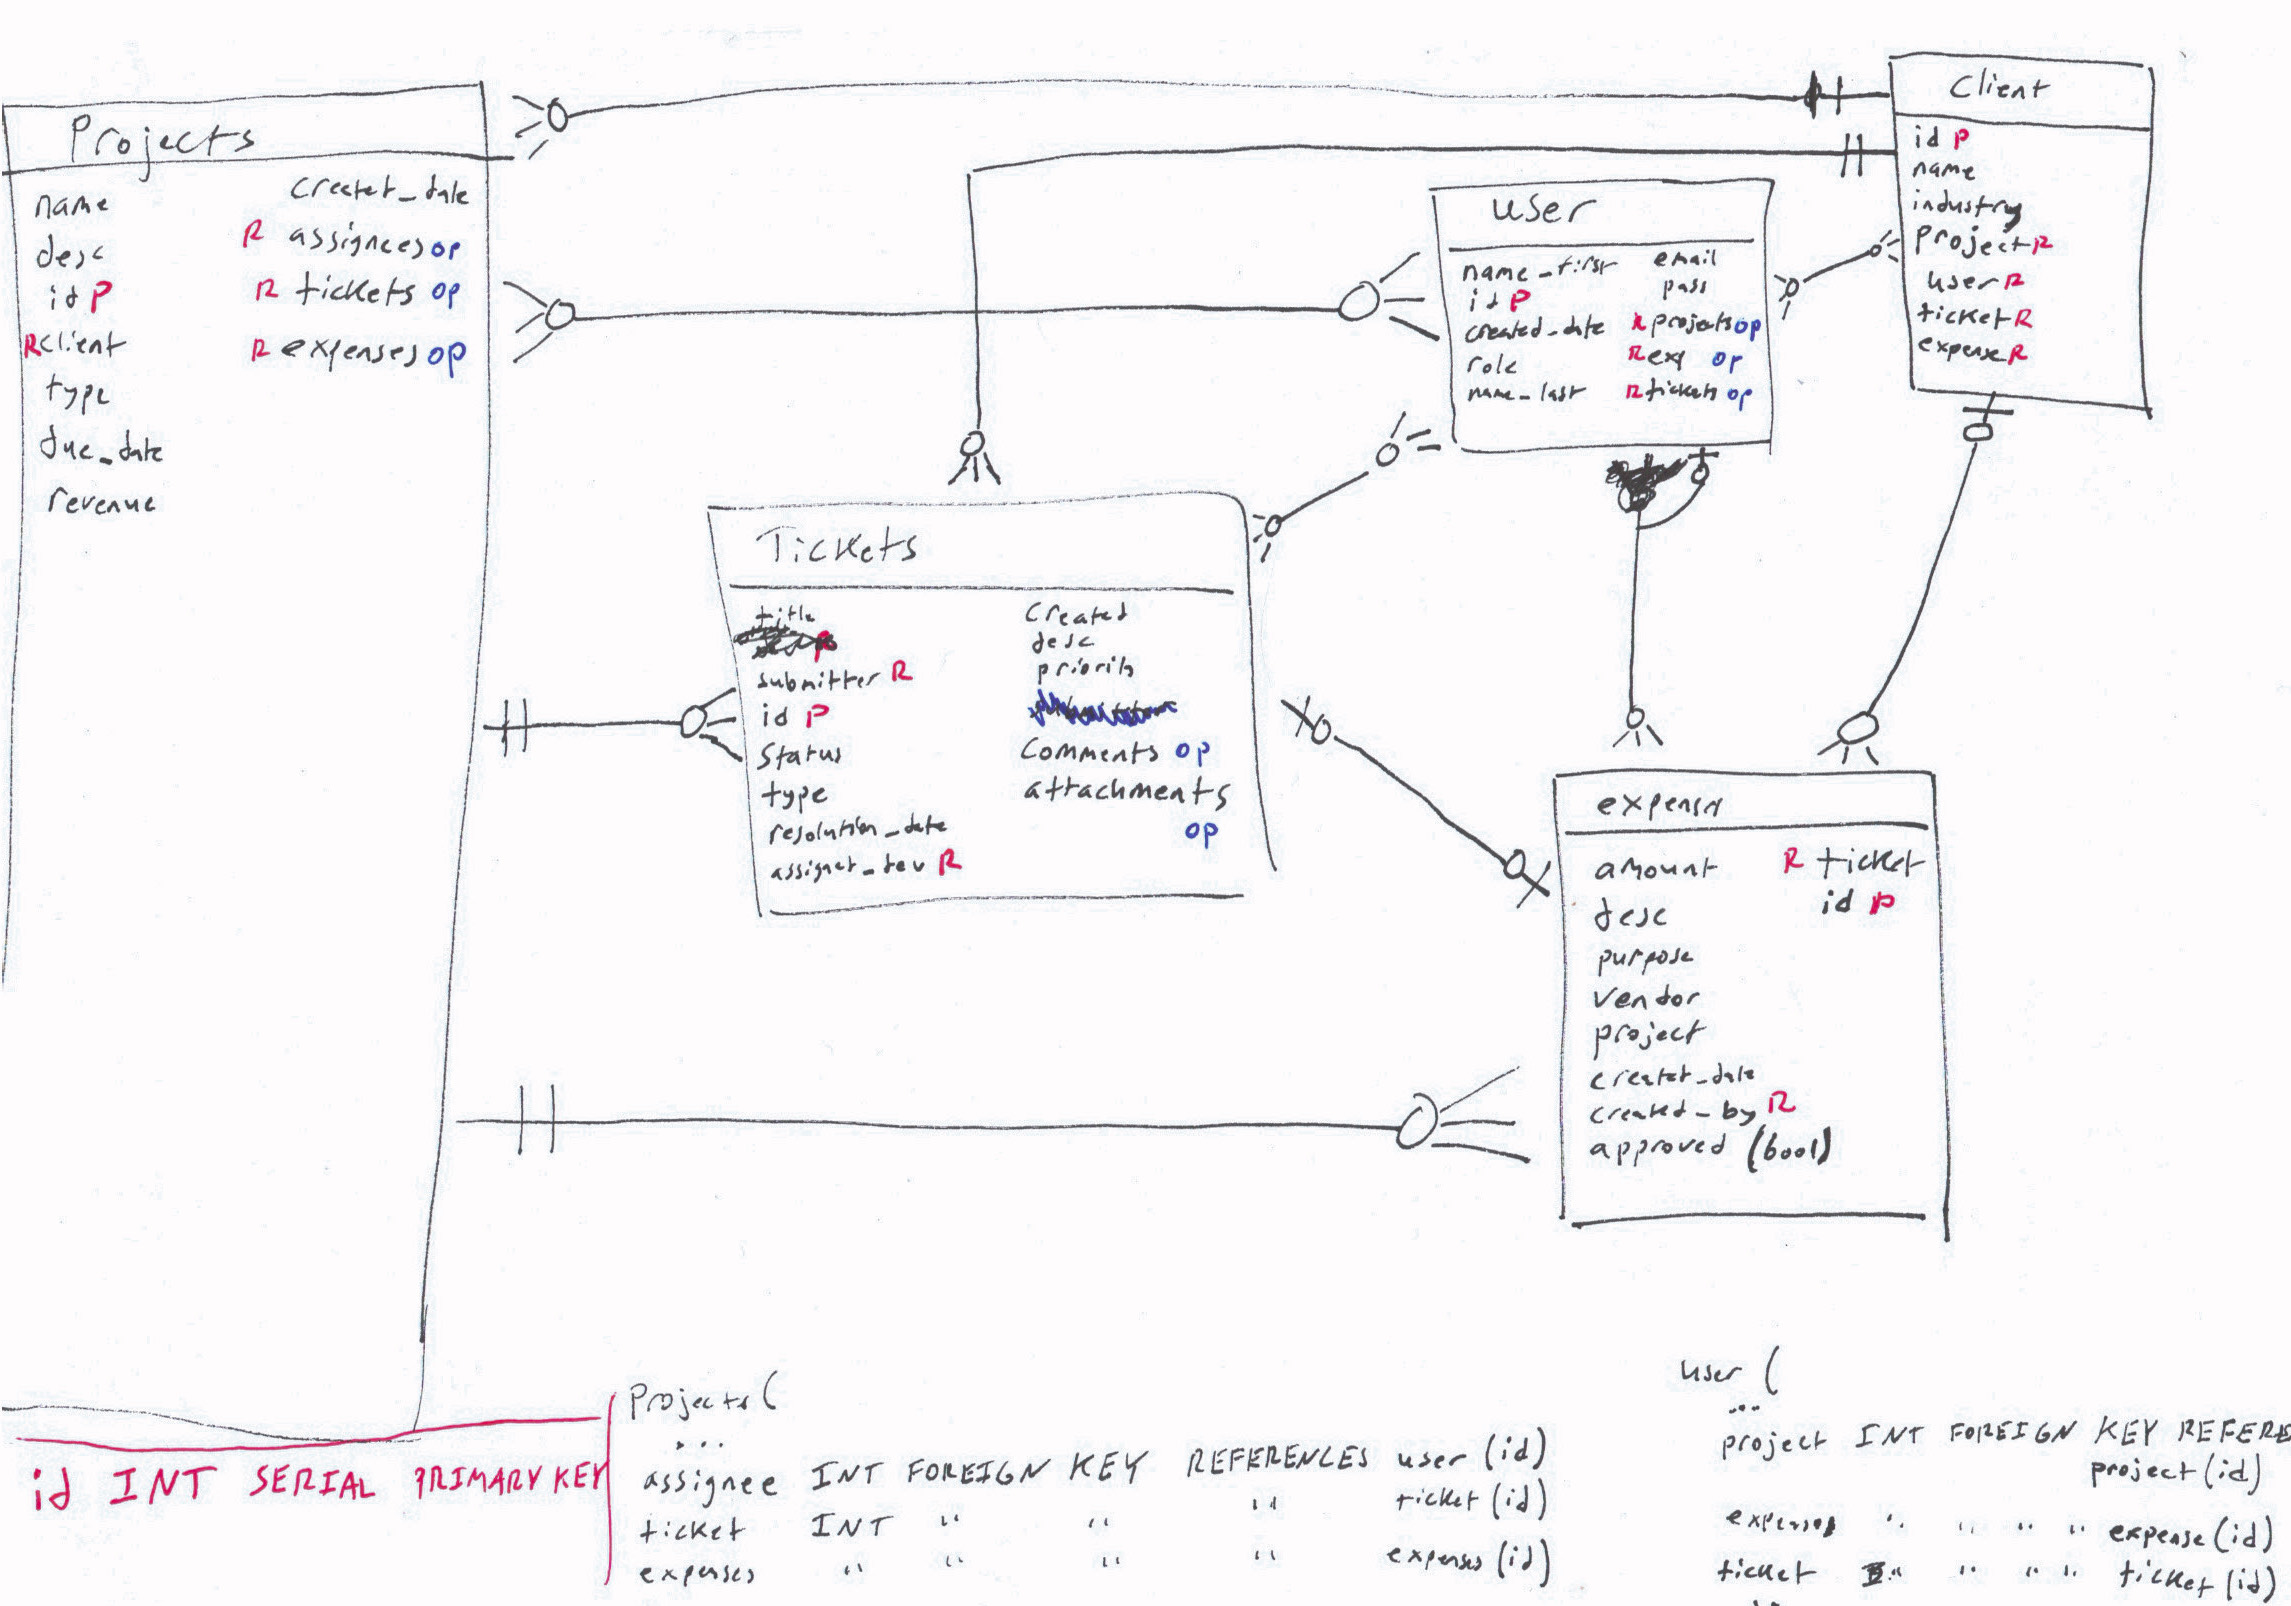 Projects
name
desc
id P
R client
type
due_date
revenue
created_date
R assignees op
R tickets op
R expenses op
Client
id P
name
industry
project R
user R
ticket R
expense R
user
name_first
id P
created_date
role
name_last
email
pass
R projects op
R exp op
R tickets op
Tickets
title
submitter R
id P
Status
type
resolution_date
assigned_dev R
Created
desc
priority
Comments op
attachments
op
amount
desc
purpose
vendor
project
created_date
created_by R
approved (bool)
R ticket
id P
id INT SERIAL PRIMARY KEY
Projects (
...
assignee INT FOREIGN KEY REFERENCES user (id)
ticket INT " " " ticket (id)
expenses " " " " expenses (id)
user (
...
project INT FOREIGN KEY REFERE
project (id)
expenses " " " " expense (id)
ticket " " " " ticket (id)